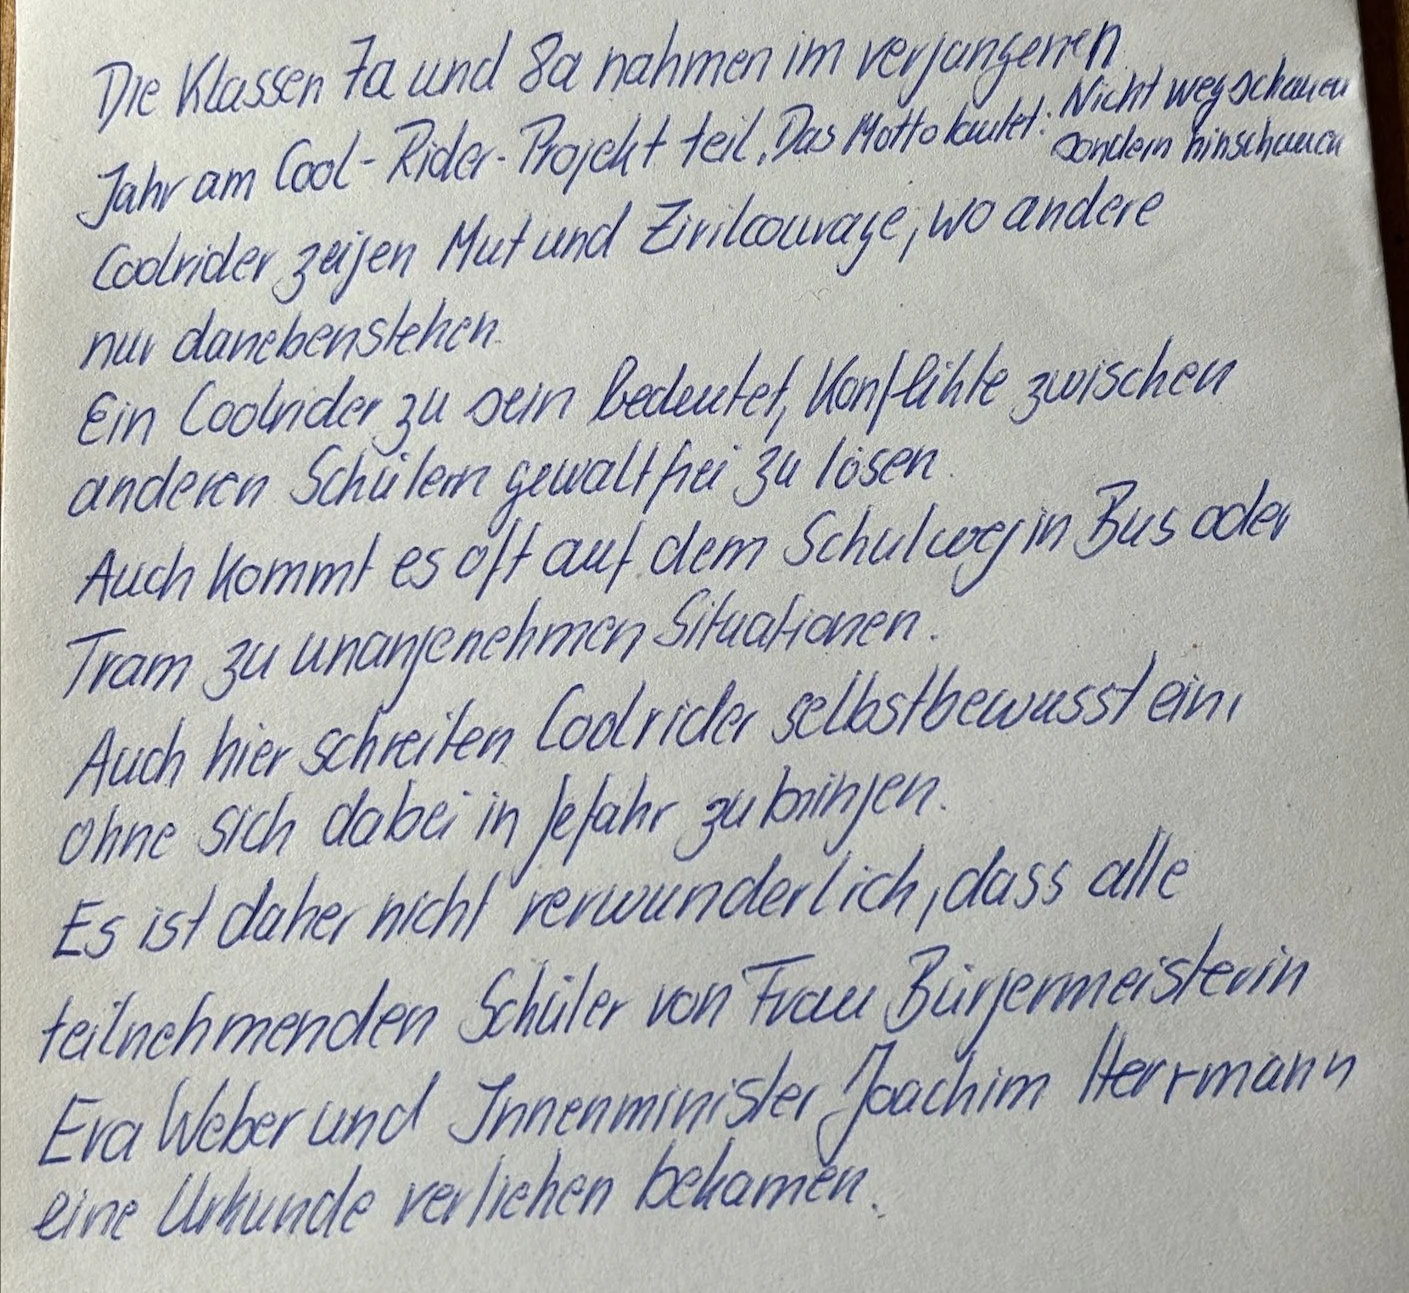 Die Klassen 7a und 8a nahmen im vergangenen
Jahr am Cool-Rider-Projekt teil. Das Motto lautet: Nicht wegschauen
sondern hinschauen
Coolrider zeigen Mut und Zivilcourage, wo andere
nur danebenstehen.
Ein Coolrider zu sein bedeutet, Konflikte zwischen
anderen Schülern gewaltfrei zu lösen.
Auch kommt es oft auf dem Schulweg in Bus oder
Tram zu unangenehmen Situationen.
Auch hier schreiten Coolrider selbstbewusst ein,
ohne sich dabei in Gefahr zu bringen.
Es ist daher nicht verwunderlich, dass alle
teilnehmenden Schüler von Frau Bürgermeisterin
Eva Weber und Innenminister Joachim Herrmann
eine Urkunde verliehen bekamen.